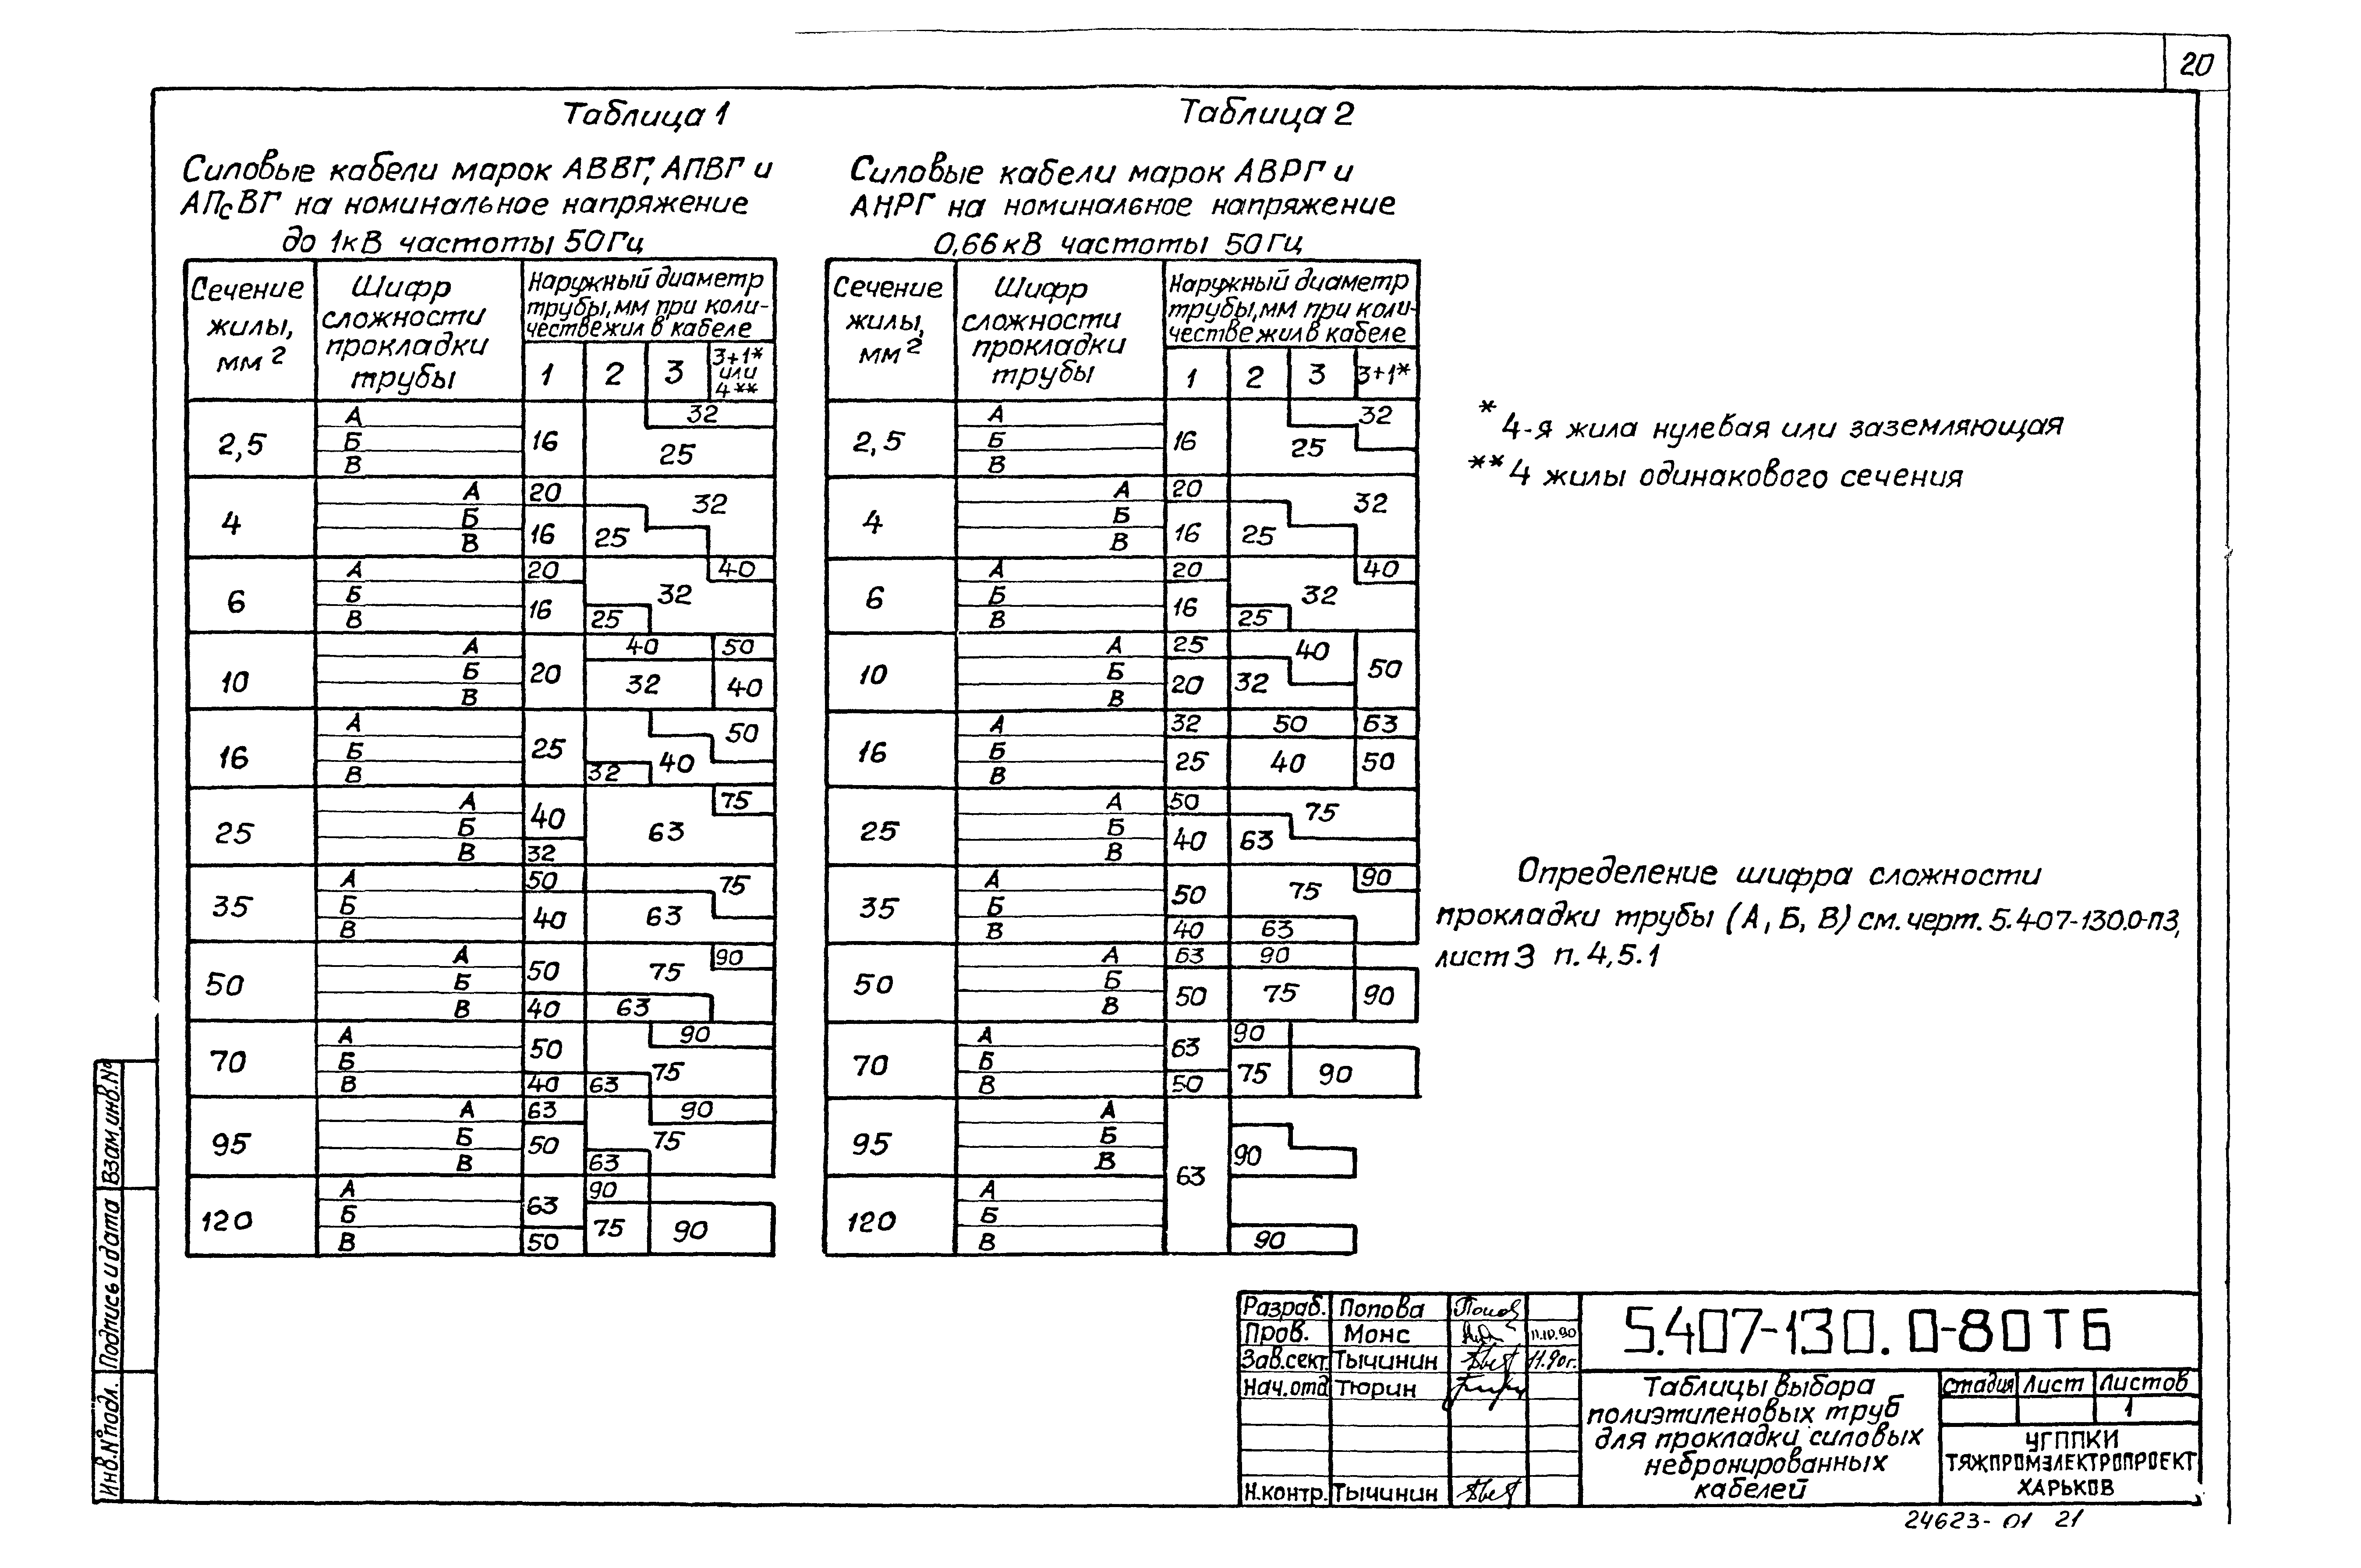 20
Таблица 1
Силовые кабели марок АВВГ, АПВГ и
АПсВГ на номинальное напряжение
до 1кВ частоты 50Гц
Сечение жилы, мм²
Шифр сложности прокладки трубы
Наружный диаметр
трубы, мм при коли-
честве жил в кабеле
1 2 3 3+1* или 4**
2,5 А Б В 16 32 25
4 А Б В 20 16 25 32
6 А Б В 20 16 25 32 40
10 А Б В 20 40 32 50 40
16 А Б В 25 32 40 50
25 А Б В 40 32 63 75
35 А Б В 50 40 63 75
50 А Б В 50 40 75 63 90
70 А Б В 50 40 63 90 75
95 А Б В 63 50 63 90 75
120 А Б В 63 50 90 75 90
Таблица 2
Силовые кабели марок АВРГ и
АНРГ на номинальное напряжение
0,66кВ частоты 50Гц
Сечение жилы, мм²
Шифр сложности прокладки трубы
Наружный диаметр
трубы, мм при коли-
честве жил в кабеле
1 2 3 3+1*
2,5 А Б В 16 25 32
4 А Б В 20 16 25 32
6 А Б В 20 16 25 32 40
10 А Б В 25 20 32 40 50
16 А Б В 32 25 50 40 63 50
25 А Б В 50 40 63 75
35 А Б В 50 40 75 63 90
50 А Б В 63 50 90 75 90
70 А Б В 63 50 90 75 90
95 А Б В 63 90
120 А Б В 90
* 4-я жила нулевая или заземляющая
** 4 жилы одинакового сечения
Определение шифра сложности
прокладки трубы (А, Б, В) см. черт. 5.407-130.0-ПЗ,
лист 3 п. 4, 5.1
Взам.инв.№
Подпись и дата
Инв.№ подл.
Разраб. Попова
Пров. Монс 11.10.90
Зав.сект. Тычинин 11.90г.
Нач.отд Тюрин
Н.контр. Тычинин
5.407-130.0-80ТБ
Таблицы выбора
полиэтиленовых труб
для прокладки силовых
небронированных
кабелей
стадия Лист Листов
1
УГППКИ
ТЯЖПРОМЭЛЕКТРОПРОЕКТ
ХАРЬКОВ
24623-01 21